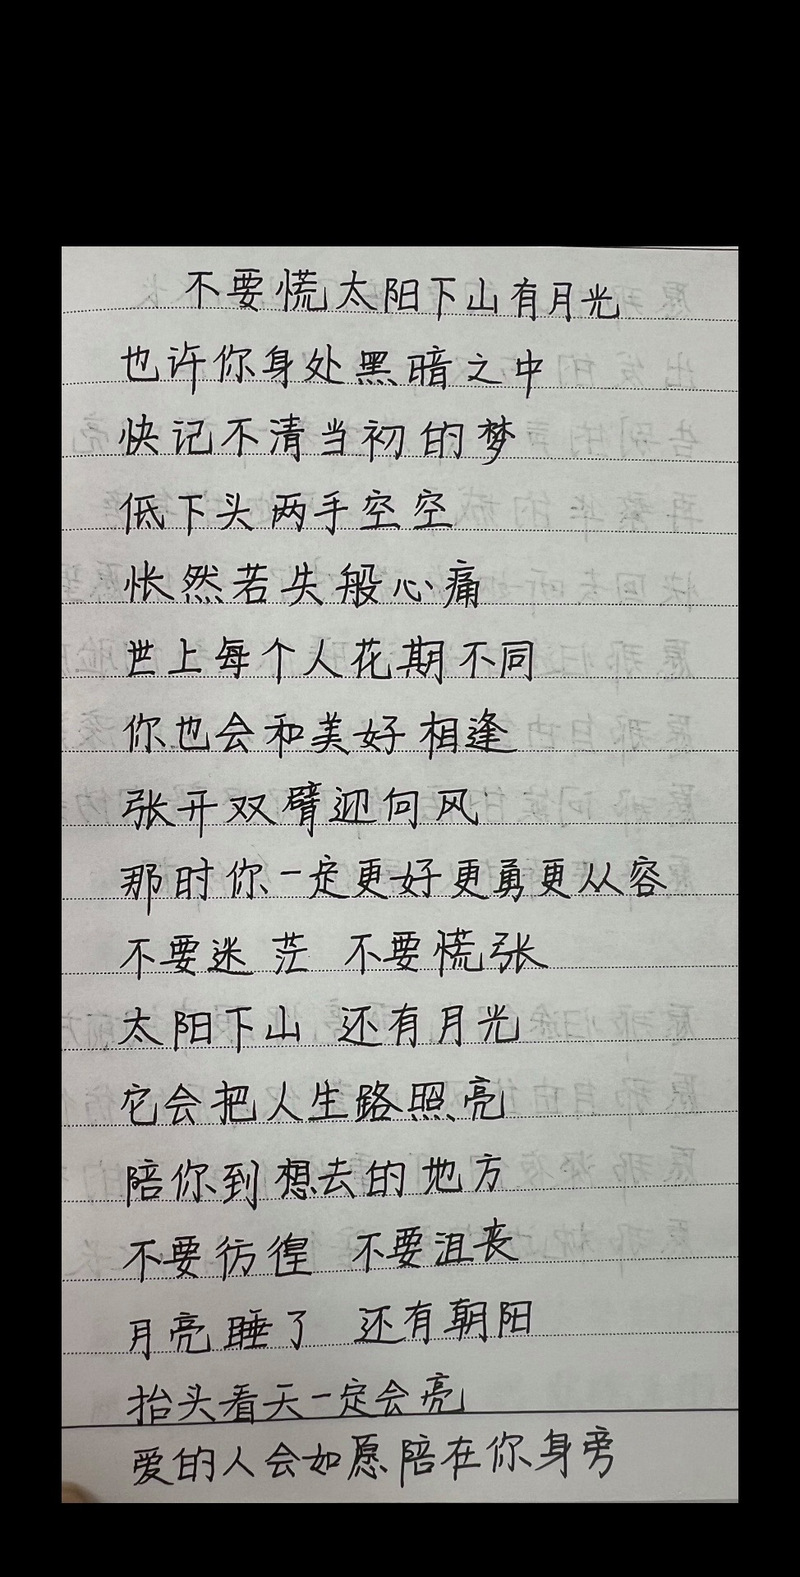 不要慌太阳下山有月光
也许你身处黑暗之中
快记不清当初的梦
低下头两手空空
怅然若失般心痛
世上每个人花期不同
你也会和美好相逢
张开双臂迎向风
那时你一定更好更勇更从容
不要迷茫 不要慌张
太阳下山 还有月光
它会把人生路照亮
陪你到想去的地方
不要彷徨 不要沮丧
月亮睡了 还有朝阳
抬头看天一定会亮
爱的人会如愿陪在你身旁